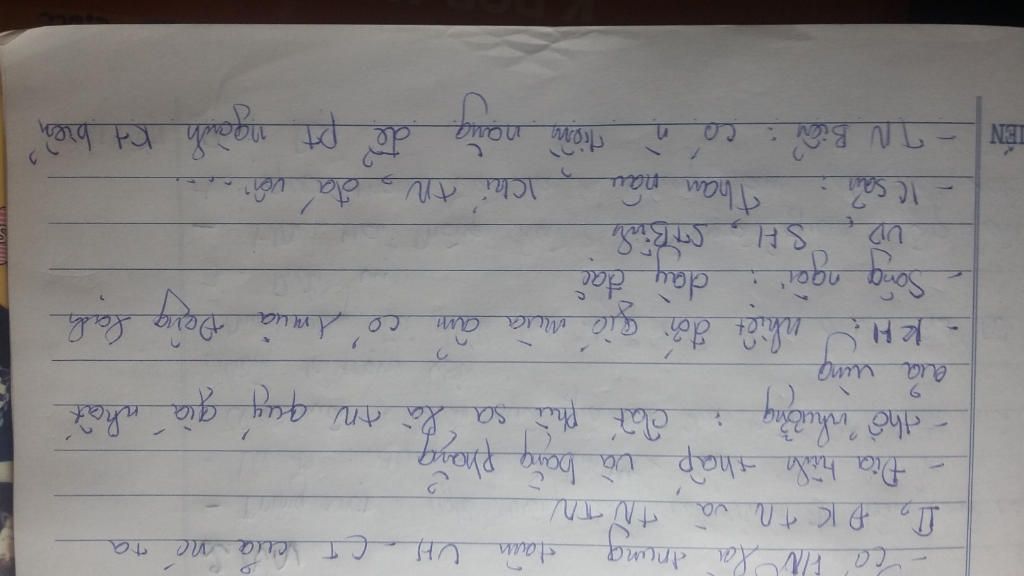 - Có HN là trung tâm VH - CT của nc ta
II, ĐKTN và TNTN
- Địa hình thấp và bằng phẳng
- thổ nhưỡng : đất phù sa là TN quý giá nhất
của vùng
- KH : nhiệt đới gió mùa ẩm có 1 mùa Đông lạnh
- Sông ngòi : dày đặc
VD, SH, STBình
- Ksản : Than nâu, Khí TN, đá vôi....
- TN Biển : có n tiềm năng để pt ngành KT biển